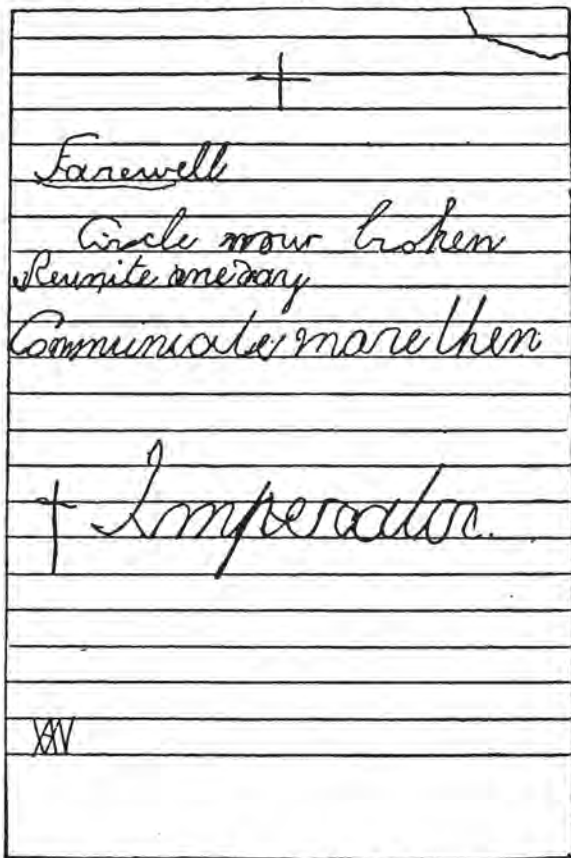 Farewell
Circle now broken
Reunite one day
Communicate more then
† Imperator.